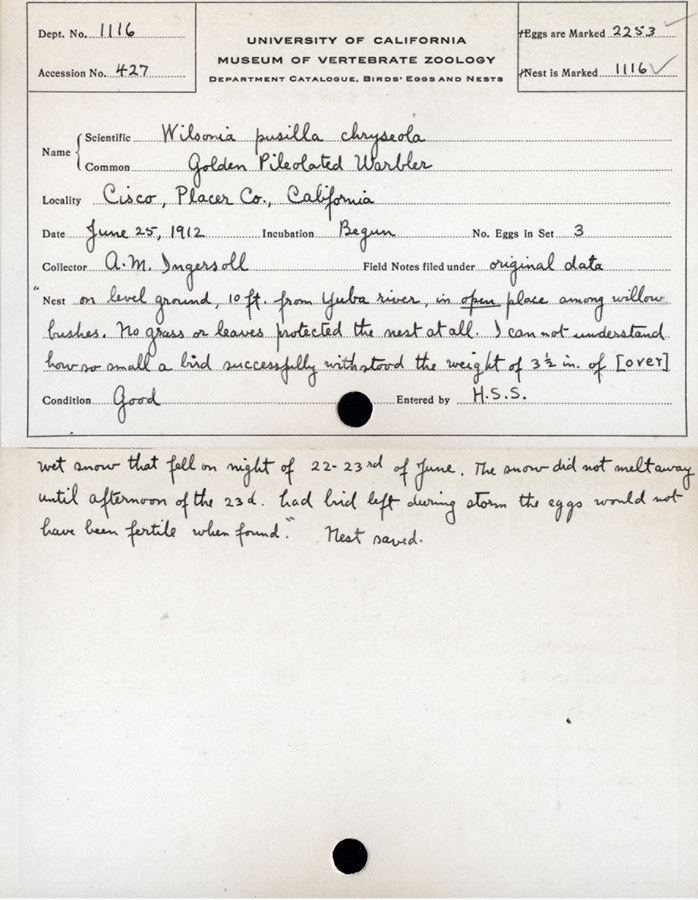 Dept. No. 1116
Accession No. 427
UNIVERSITY OF CALIFORNIA
MUSEUM OF VERTEBRATE ZOOLOGY
DEPARTMENT CATALOGUE, BIRDS' EGGS AND NESTS
Eggs are Marked 2253
Nest is Marked 1116 ✓
Name { Scientific Wilsonia pusilla chryseola
Common Golden Pileolated Warbler
Locality Cisco, Placer Co., California
Date June 25, 1912 Incubation Begun No. Eggs in Set 3
Collector A.M. Ingersoll Field Notes filed under original data
"Nest on level ground, 10 ft. from Yuba river, in open place among willow
bushes. No grass or leaves protected the nest at all. I can not understand
how so small a bird successfully withstood the weight of 3½ in. of [over]
Condition Good Entered by H.S.S.
wet snow that fell on night of 22-23rd of June. The snow did not melt away
until afternoon of the 23d. had bird left during storm the eggs would not
have been fertile when found." Nest saved.